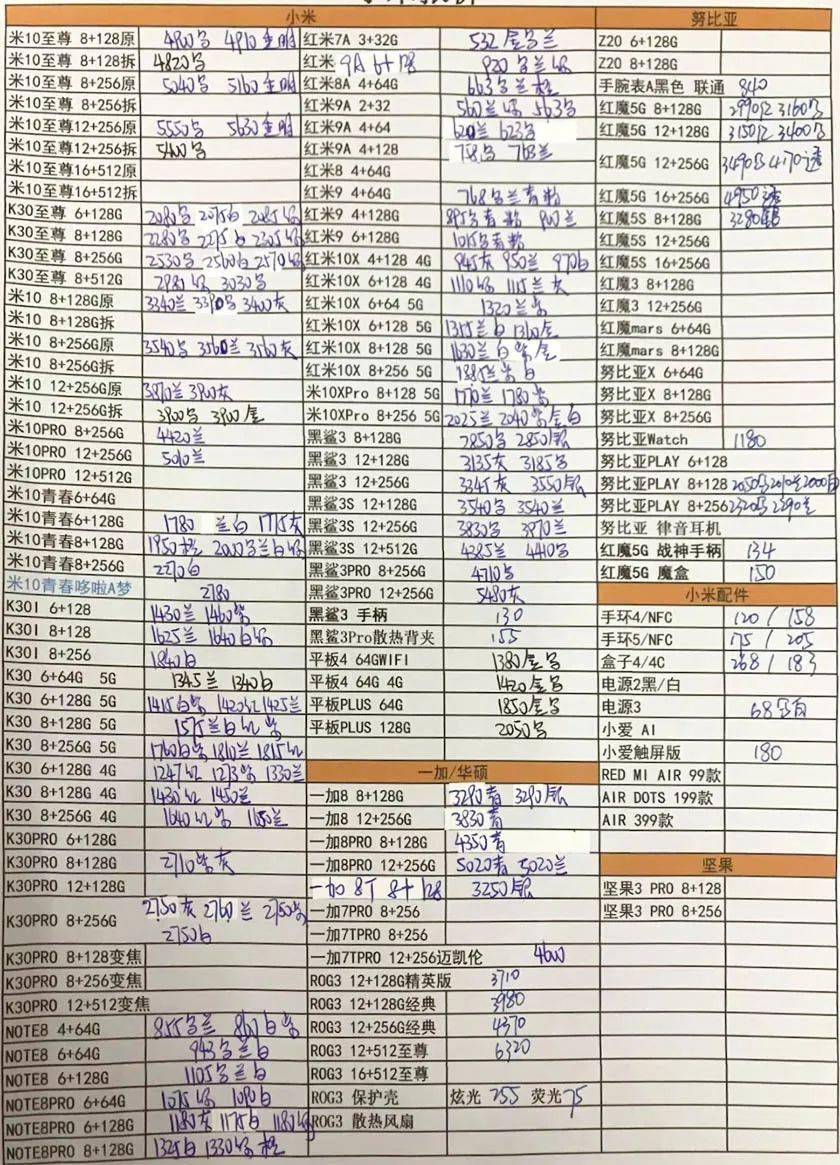 小米
米10至尊 8+128原 4900黑 4910透明
米10至尊 8+128拆 4820黑
米10至尊 8+256原 5040黑 5160透明
米10至尊 8+256拆
米10至尊12+256原 5550黑 5630透明
米10至尊12+256拆 5400黑
米10至尊16+512原
米10至尊16+512拆
K30至尊 6+128G 2080黑 2075白 2085绿
K30至尊 8+128G 2280黑 2275白 2305绿
K30至尊 8+256G 2530黑 2560白 2570绿
K30至尊 8+512G 2980绿 3030黑
米10 8+128G原 3340兰 3390黑 3400灰
米10 8+128G拆
米10 8+256G原 3540黑 3560兰 3560灰
米10 8+256G拆
米10 12+256G原 3870兰 3900灰
米10 12+256G拆 3900黑 3900金
米10PRO 8+256G 4420兰
米10PRO 12+256G 5010兰
米10PRO 12+512G
米10青春6+64G
米10青春6+128G 1780 兰白 1775灰
米10青春8+128G 1950桃 2000黑兰白绿
米10青春8+256G 2270白
米10青春哆啦A梦 2780
K30I 6+128 1430兰 1460紫
K30I 8+128 1625兰 1640白绿
K30I 8+256 1840白
K30 6+64G 5G 1345兰 1340白
K30 6+128G 5G 1415白紫 1420红1425兰
K30 8+128G 5G 1575兰白红紫
K30 8+256G 5G 1760白紫 1810兰 1815红
K30 6+128G 4G 1247红 1273紫 1330兰
K30 8+128G 4G 1430红 1450兰
K30 8+256G 4G 1640红紫 1650兰
K30PRO 6+128G
K30PRO 8+128G 2710紫灰
K30PRO 12+128G
K30PRO 8+256G 2750灰 2760兰 2750紫
2750白
K30PRO 8+128变焦
K30PRO 8+256变焦
K30PRO 12+512变焦
NOTE8 4+64G 855黑兰 860白紫
NOTE8 6+64G 943黑兰白
NOTE8 6+128G 1105黑兰白
NOTE8PRO 6+64G 1075绿 1090白
NOTE8PRO 6+128G 1180灰 1175白 1180绿
NOTE8PRO 8+128G 1325白 1330绿 橙
红米7A 3+32G 532金黑兰
红米 9A 6+128 920黑兰绿
红米8A 4+64G 663黑兰橙
红米9A 2+32 560兰绿 563黑
红米9A 4+64 620兰 623黑
红米9A 4+128 758黑 763兰
红米8 4+64G
红米9 4+64G 768黑兰青粉
红米9 4+128G 895黑青粉 900兰
红米9 6+128G 1015黑青粉
红米10X 4+128 4G 945灰 950兰 970白
红米10X 6+128 4G 1110绿 1115兰灰
红米10X 6+64 5G 1320兰紫
红米10X 6+128 5G 1315兰白 1360金
红米10X 8+128 5G 1630兰白紫金
红米10X 8+256 5G 1885兰紫白
米10XPro 8+128 5G 1770兰 1780紫
米10XPro 8+256 5G 2025兰 2040紫金白
黑鲨3 8+128G 2850黑 2850银
黑鲨3 12+128G 3135灰 3185黑
黑鲨3 12+256G 3345灰 3550银
黑鲨3S 12+128G 3540黑 3540兰
黑鲨3S 12+256G 3830黑 3970兰
黑鲨3S 12+512G 4285兰 4410黑
黑鲨3PRO 8+256G 4710黑
黑鲨3PRO 12+256G 5480灰
黑鲨3 手柄 130
黑鲨3Pro散热背夹 155
平板4 64GWIFI 1380金黑
平板4 64G 4G 1420金黑
平板PLUS 64G 1850金黑
平板PLUS 128G 2050黑
一加/华硕
一加8 8+128G 3290青 3290银
一加8 12+256G 3830青
一加8PRO 8+128G 4350青
一加8PRO 12+256G 5020青 5020兰
一加 8T 8+128 3250银
一加7PRO 8+256
一加7TPRO 8+256
一加7TPRO 12+256迈凯伦 4600
ROG3 12+128G精英版 3710
ROG3 12+128G经典 3980
ROG3 12+256G经典 4370
ROG3 12+512至尊 6320
ROG3 16+512至尊
ROG3 保护壳 炫光 255 荧光75
ROG3 散热风扇
努比亚
Z20 6+128G
Z20 8+128G
手腕表A黑色 联通 840
红魔5G 8+128G 2990红 3160黑
红魔5G 12+128G 3150红 3400黑
红魔5G 12+256G 3490黑 4170透
红魔5G 16+256G 4950透
红魔5S 8+128G 3280银
红魔5S 12+256G
红魔5S 16+256G
红魔3 8+128G
红魔3 12+256G
红魔mars 6+64G
红魔mars 8+128G
努比亚X 6+64G
努比亚X 8+128G
努比亚X 8+256G
努比亚Watch 1180
努比亚PLAY 6+128
努比亚PLAY 8+128 2050黑2010兰2000白
努比亚PLAY 8+256 2320黑 2290兰
努比亚 律音耳机
红魔5G 战神手柄 134
红魔5G 魔盒 150
小米配件
手环4/NFC 120 / 158
手环5/NFC 175 / 205
盒子4/4C 268 / 183
电源2黑/白
电源3 68黑白
小爱 AI
小爱触屏版 180
RED MI AIR 99款
AIR DOTS 199款
AIR 399款
坚果
坚果3 PRO 8+128
坚果3 PRO 8+256